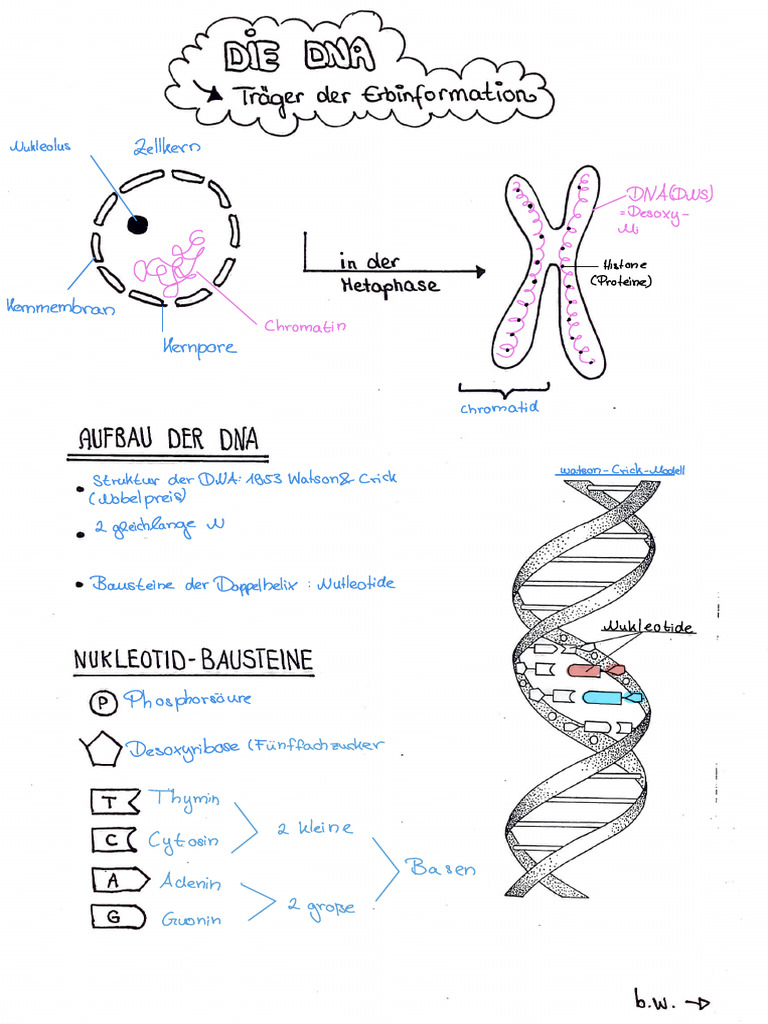 DIE DNA
Träger der Erbinformation
Nukleolus
Zellkern
Kernmembran
Kernpore
Chromatin
in der
Metaphase
DNA(DNS)
=Desoxy-
Mi
Histone
(Proteine)
Chromatid
AUFBAU DER DNA
• Struktur der DNA: 1953 Watson& Crick
(Nobelpreis)
• 2 gleichlange N
• Bausteine der Doppelhelix : Nukleotide
Watson-Crick-Modell
Nukleotide
NUKLEOTID-BAUSTEINE
P Phosphorsäure
Desoxyribose (Fünffachzucker
T Thymin
C Cytosin
2 kleine
A Adenin
G Guanin
2 große
Basen
b.w. →